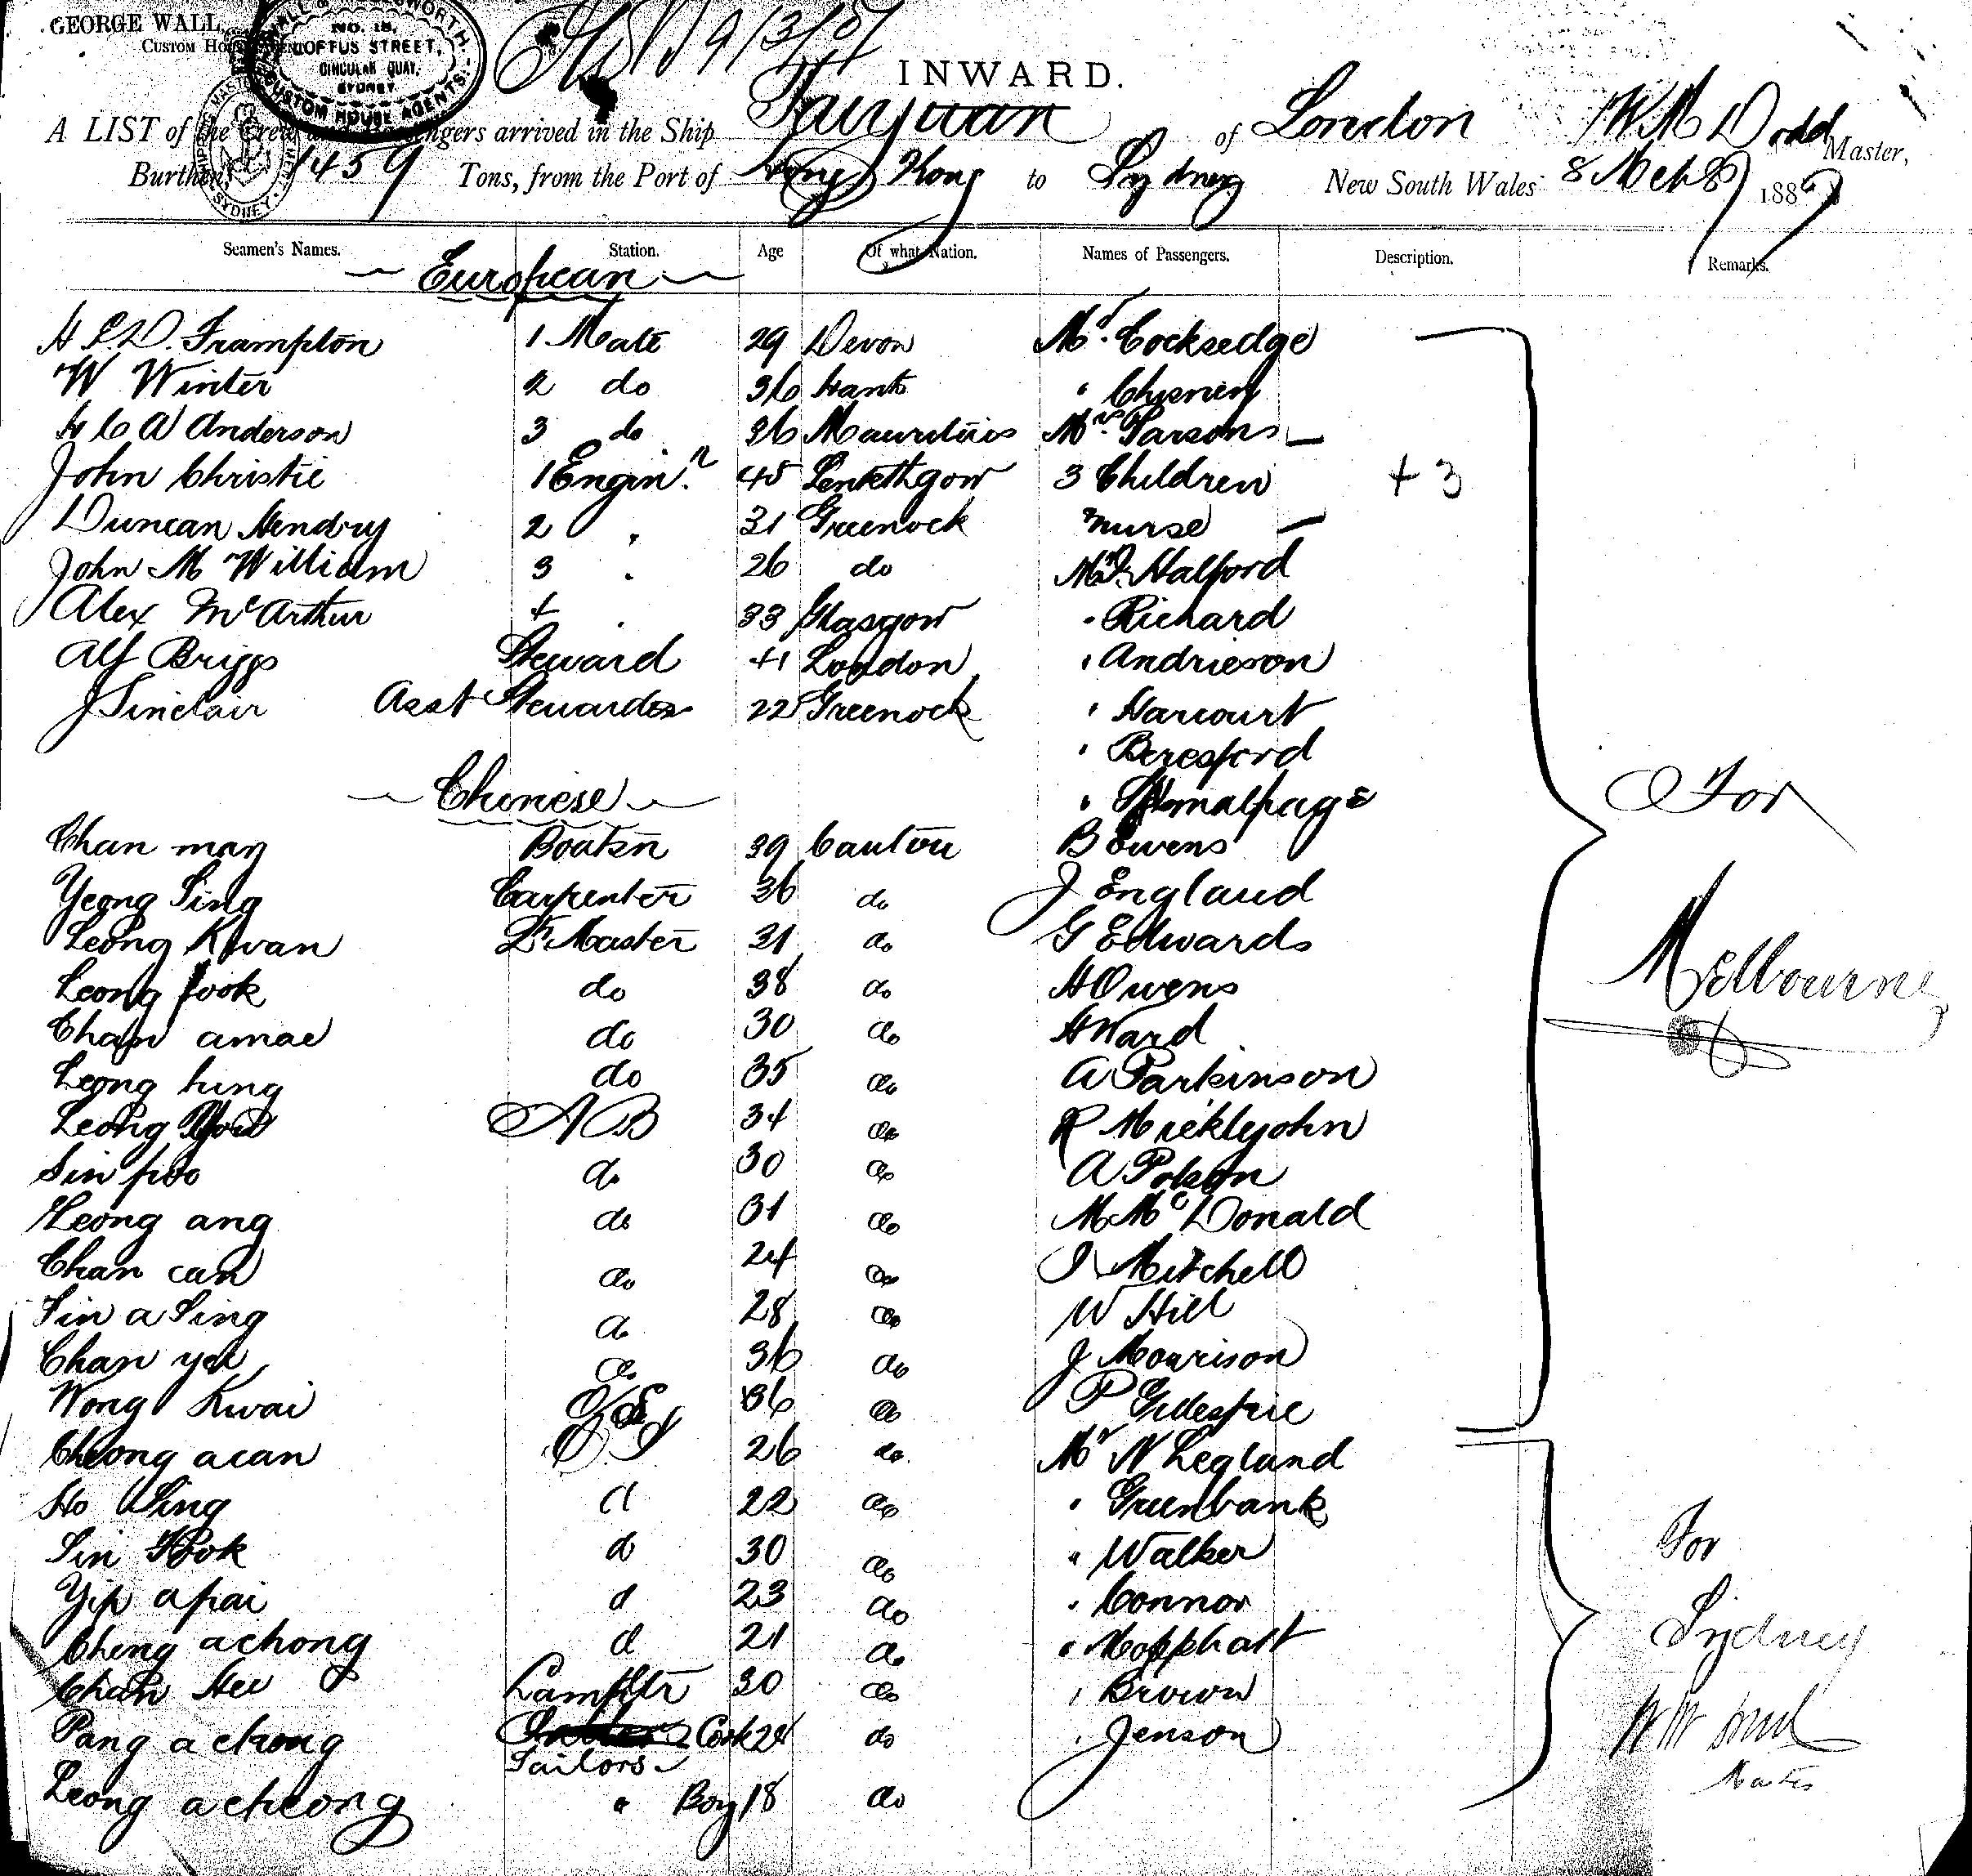 GEORGE WALL,
CUSTOM HOUSE AGENT
NO. 18, LOFTUS STREET, CIRCULAR QUAY, SYDNEY
CUSTOM HOUSE AGENTS.
9/3/87
INWARD.
A LIST of the Crew and Passengers arrived in the Ship Taiyuan of London W M Dodd Master,
Burthen 1459 Tons, from the Port of Hong Kong to Sydney New South Wales 8 Mch 1887
Seamen's Names. Station. Age Of what Nation. Names of Passengers. Description. Remarks.
European
H P. D. Frampton 1 Mate 29 Devon Mr. Cocksedge
W Winter 2 do 36 Hants " Chisnien
H C A Anderson 3 do 26 Mauritius Mrs. Parsons
John Christie 1 Enginr. 45 Lenlithgow 3 Children + 3
Duncan Hendry 2 " 31 Greenock nurse
John M William 3 " 26 do Mr. Halford
Alex McArthur 4 " 33 Glasgow " Richard
Alf Briggs Steward 41 London " Andrieson
J Sinclair Asst Steward 22 Greenock " Harcourt
" Beresford
Chinese " Smalpage
Chan may Boatsn 39 Canton B Owens
Yeong Sing Carpenter 36 do J England
Leong Kwan Qr Master 31 do G Edwards
Leong fook do 38 do H Owens
Chan amae do 30 do H Ward
Leong hung do 35 do A Parkinson
Leong AB 34 do R Micklyjohn
Sin foo do 30 do A Polson
Leong ang do 31 do M McDonald
Chan can do 24 do J Mitchell
Sin a Sing do 28 do W Hill
Chan yet do 36 do J Mourison
Wong Kwai 36 do P Gillespie
For Melbourne
Cheong acan 26 do Mr N Legland
Ho Sing d 22 do " Greenbank
Sin Fook d 30 do " Walker
Yip apai d 23 do " Connor
Cheng achong d 21 do " Mopphatt
Chan Hee Lamptr 30 do " Brown
Pang a chong Cook 24 do " Jenson
Sailors
Leong acheong " Boy 18 do
For Sydney
W M Dodd
Master